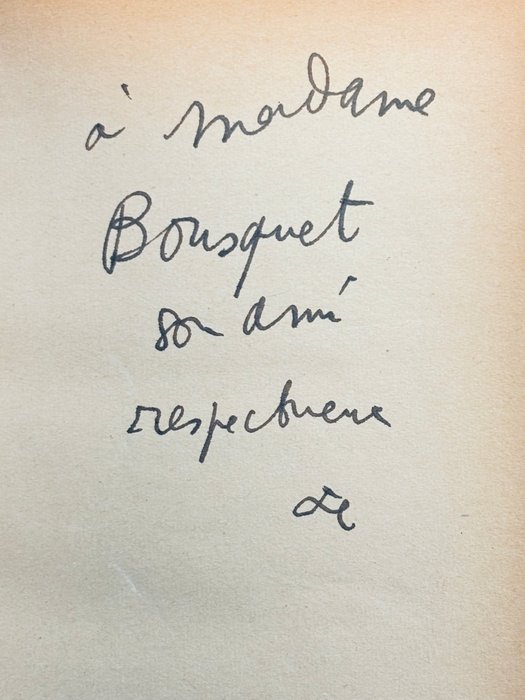 à madame
Bousquet
son ami
respectueux
de